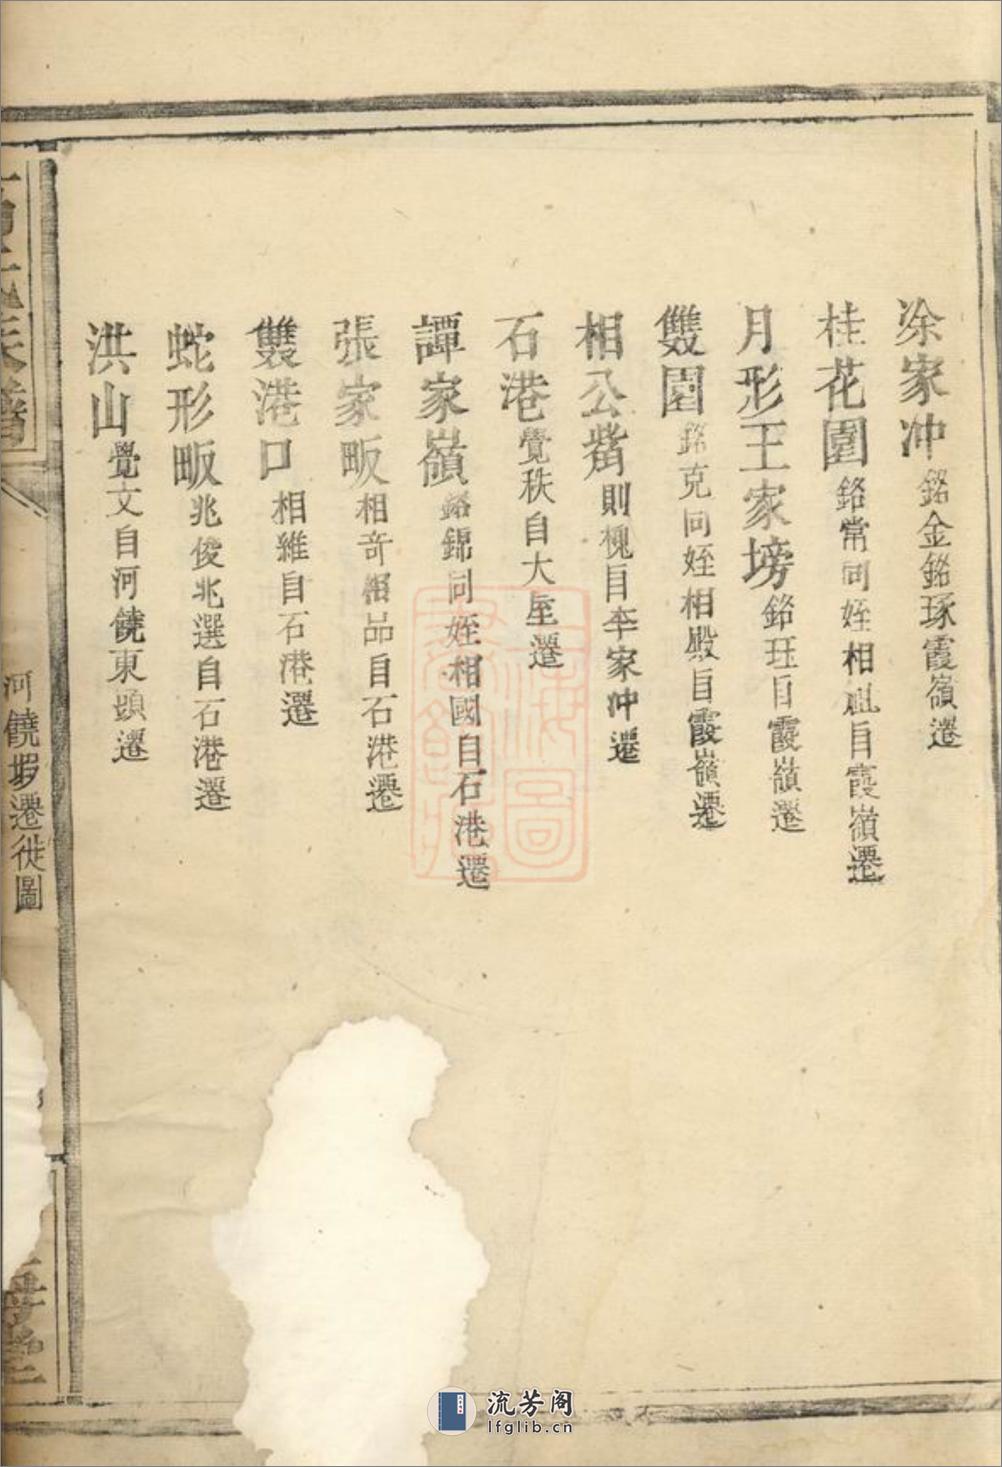 涂家冲銘金銘琢霞嶺遷
桂花園銘常同姪相自霞嶺遷
月形王家塝銘珏自霞嶺遷
雙園銘克同姪相殿自霞嶺遷
相公觜則槐自李家冲遷
石港覺秩自大屋遷
譚家嶺銘錦同姪相國自石港遷
張家畈相奇相品自石港遷
雙港口相維自石港遷
蛇形畈兆俊兆選自石港遷
洪山覺文自河饒東頭遷
河饒塅遷徙圖
流芳阁
lfglib.cn